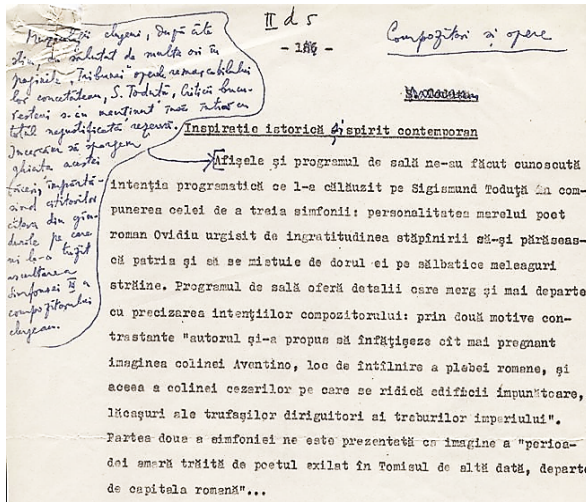 II d 5
- 186 -
Compozitori și opere
Muzicologii clujeni, după câte
știm, au salutat de multe ori în
paginile „Tribunei" opera remarcabilului
lor concetățean, S. Toduță. Criticii bucu-
reșteni s-au menținut însă într-o
total nejustificată rezervă.
Încercăm să spargem
ghiața acestei
tăceri, împărtă-
șind cititorilor
câteva din gân-
durile pe care
ni le-a trezit
ascultarea
Simfoniei III a
compozitorului
clujean.
Inspirație istorică și spirit contemporan
Afișele și programul de sală ne-au făcut cunoscută
intenția programatică ce l-a călăuzit pe Sigismund Toduță în com-
punerea celei de a treia simfonii: personalitatea marelui poet
roman Ovidiu urgisit de ingratitudinea stăpînirii să-și părăseas-
că patria și să se mistuie de dorul ei pe sălbatice meleaguri
străine. Programul de sală oferă detalii care merg și mai departe
cu precizarea intențiilor compozitorului: prin două motive con-
trastante "autorul și-a propus să înfățișeze cît mai pregnant
imaginea colinei Aventino, loc de întîlnire a plebei romane, și
aceea a colinei cezarilor pe care se ridică edificii impunătoare,
lăcașuri ale trufașilor diriguitori ai treburilor imperiului".
Partea doua a simfoniei ne este prezentată ca imagine a "perioa-
dei amară trăită de poetul exilat în Tomisul de altă dată, departe
de capitala romană"...